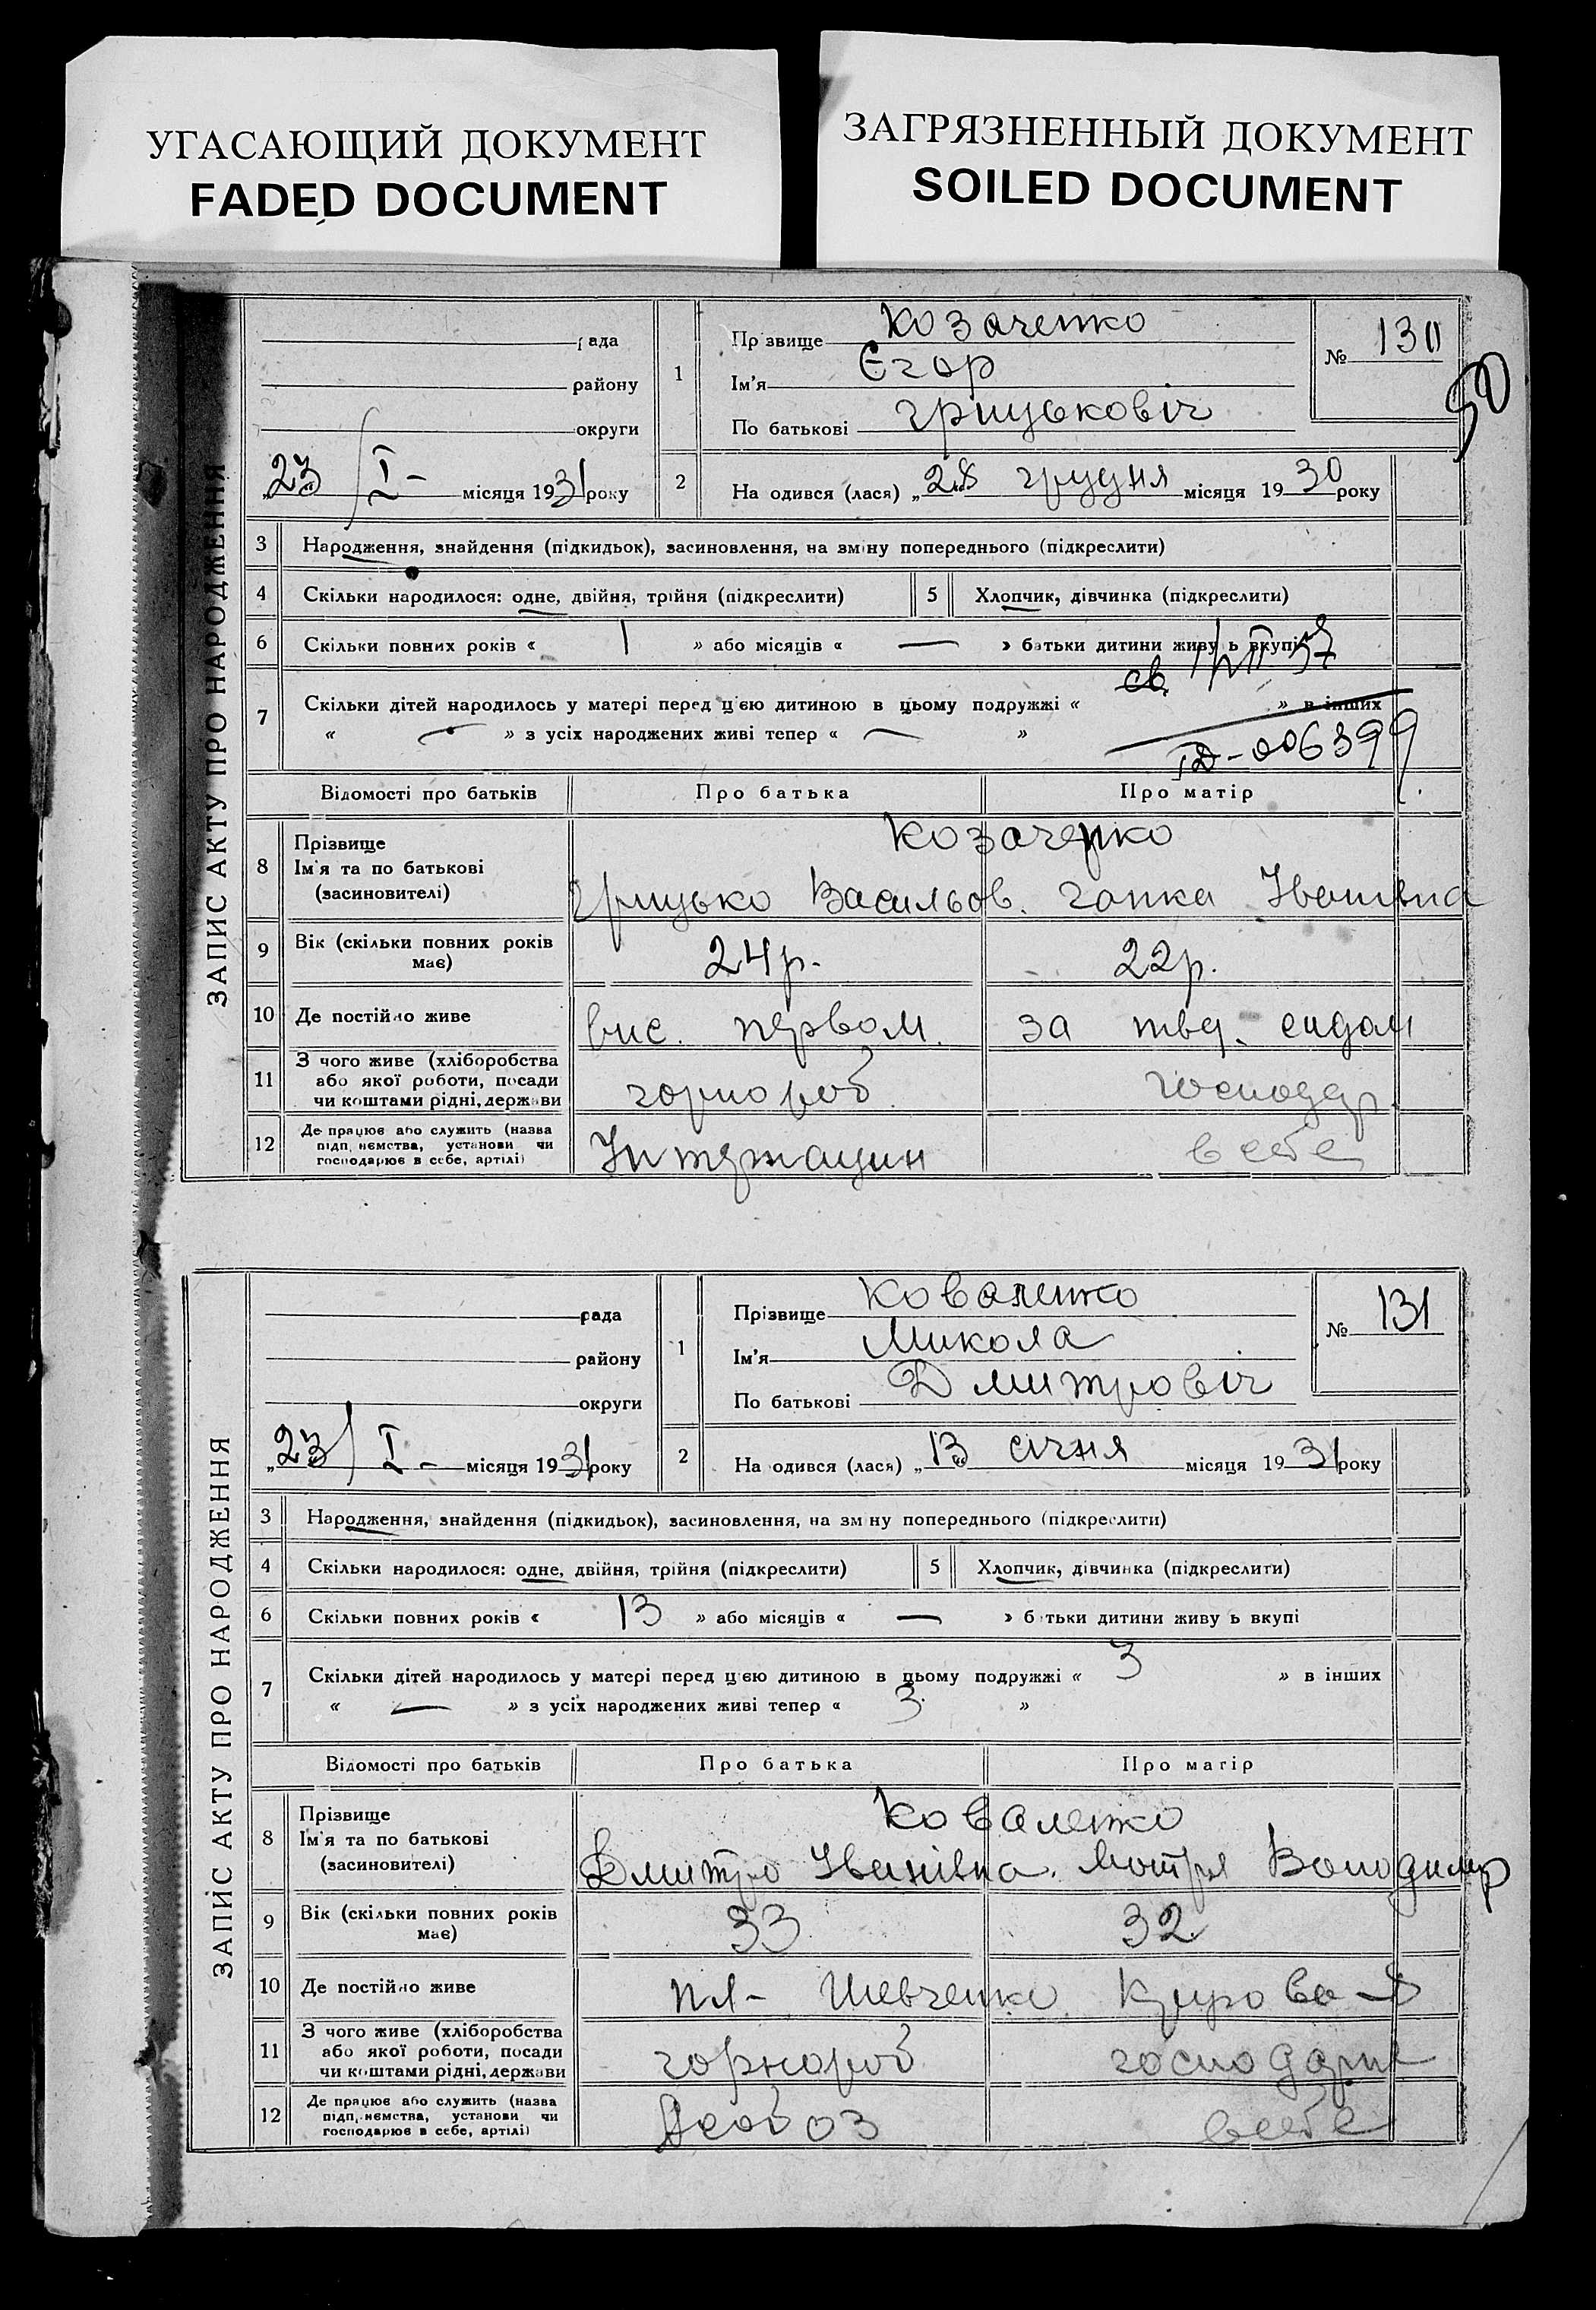 УГАСАЮЩИЙ ДОКУМЕНТ
FADED DOCUMENT
ЗАГРЯЗНЕННЫЙ ДОКУМЕНТ
SOILED DOCUMENT
50
ЗАПИС АКТУ ПРО НАРОДЖЕННЯ
рада
району
округи
„23 / I - місяця 1931 року
1 Прізвище Козаченко
Ім'я Єгор
По батькові Грицьковіч
№ 130
2 На одився (лася) „28 грудня місяця 1930 року
3 Народження, знайдення (підкидьок), засиновлення, на зміну попереднього (підкреслити)
4 Скільки народилося: одне, двійня, трійня (підкреслити) 5 Хлопчик, дівчинка (підкреслити)
6 Скільки повних років « 1 » або місяців « — » батьки дитини живу ь вкупі
7 Скільки дітей народилось у матері перед цією дитиною в цьому подружжі « » в інших
« — » з усіх народжених живі тепер « — »
св.
006399
Відомості про батьків Про батька Про матір
8 Прізвище
Ім'я та по батькові
(засиновителі)
Козаченко
Грицько Васильов. Гапка Іванівна
9 Вік (скільки повних років
має)
24р. 22р.
10 Де постійно живе вис. первом. за твер.
11 З чого живе (хліборобства
або якої роботи, посади
чи коштами рідні, держави
горнороб господар.
12 Де працює або служить (назва
підп, нємства, установи чи
господарює в себе, артілі)
в себе
ЗАПИС АКТУ ПРО НАРОДЖЕННЯ
рада
району
округи
„23 / I - місяця 1931 року
1 Прізвище Коваленко
Ім'я Микола
По батькові Дмитровіч
№ 131
2 На одився (лася) „13 січня місяця 1931 року
3 Народження, знайдення (підкидьок), засиновлення, на зм ну попереднього (підкреслити)
4 Скільки народилося: одне, двійня, трійня (підкреслити) 5 Хлопчик, дівчинка (підкреслити)
6 Скільки повних років « 13 » або місяців « — » б тьки дитини живу ь вкупі
7 Скільки дітей народилось у матері перед цією дитиною в цьому подружжі « 3 » в інших
« — » з усіх народжених живі тепер « 3. »
Відомості про батьків Про батька Про матір
8 Прізвище
Ім'я та по батькові
(засиновителі)
Коваленко
Дмитро Іванівна. Мотря Володимр
9 Вік (скільки повних років
має)
33 32
10 Де постійно живе пл- Шевченко
11 З чого живе (хліборобства
або якої роботи, посади
чи коштами рідні, держави
горнороб господарне
12 Де працює або служить (назва
підп, нємства, установи чи
господарює в себе, артілі)
в себе